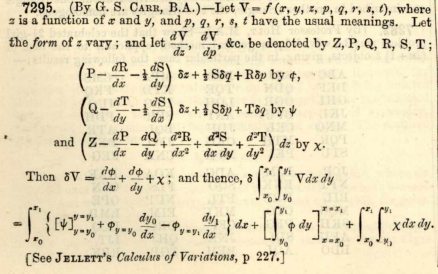 7295. (By G. S. CARR, B.A.)—Let V = f (x, y, z, p, q, r, s, t), where
z is a function of x and y, and p, q, r, s, t have the usual meanings. Let
the form of z vary; and let dV/dz, dV/dp, &c. be denoted by Z, P, Q, R, S, T;
(P − dR/dx − ½ dS/dy) δz + ½ Sδq + Rδp by φ,
(Q − dT/dy − ½ dS/dx) δz + ½ Sδp + Tδq by ψ
and (Z − dP/dx − dQ/dy + d²R/dx² + d²S/dx dy + d²T/dy²) dz by χ.
Then δV = dφ/dx + dψ/dy + χ; and thence, δ ∫_{x₀}^{x₁} ∫_{y₀}^{y₁} V dx dy
= ∫_{x₀}^{x₁} { [ψ]_{y=y₀}^{y=y₁} + φ_{y=y₀} dy₀/dx − φ_{y=y₁} dy₁/dx } dx + [ ∫_{y₀}^{y₁} φ dy ]_{x=x₀}^{x=x₁} + ∫_{x₀}^{x₁} ∫_{y₀}^{y₁} χ dx dy.
[See JELLETT's Calculus of Variations, p 227.]